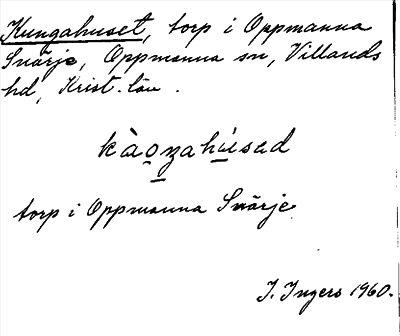 Kungahuset, torp i Oppmanna
Snärje, Oppmanna sn, Villands
hd, Krist. län.
kàọŋahúsəd
torp i Oppmanna Snärje
I. Ingers 1960.